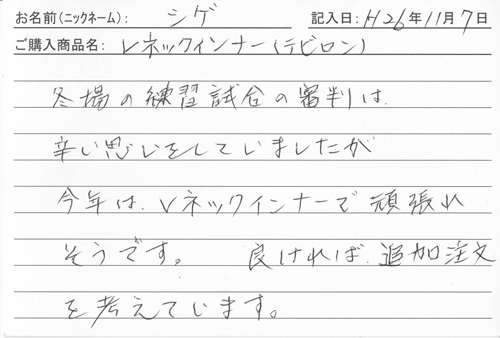 お名前(ニックネーム): シゲ 記入日: H26年11月7日
ご購入商品名: Vネックインナー(テビロン)
冬場の練習試合の審判は、
辛い思いをしていましたが
今年は、Vネックインナーで頑張れ
そうです。 良ければ、追加注文
を考えています。